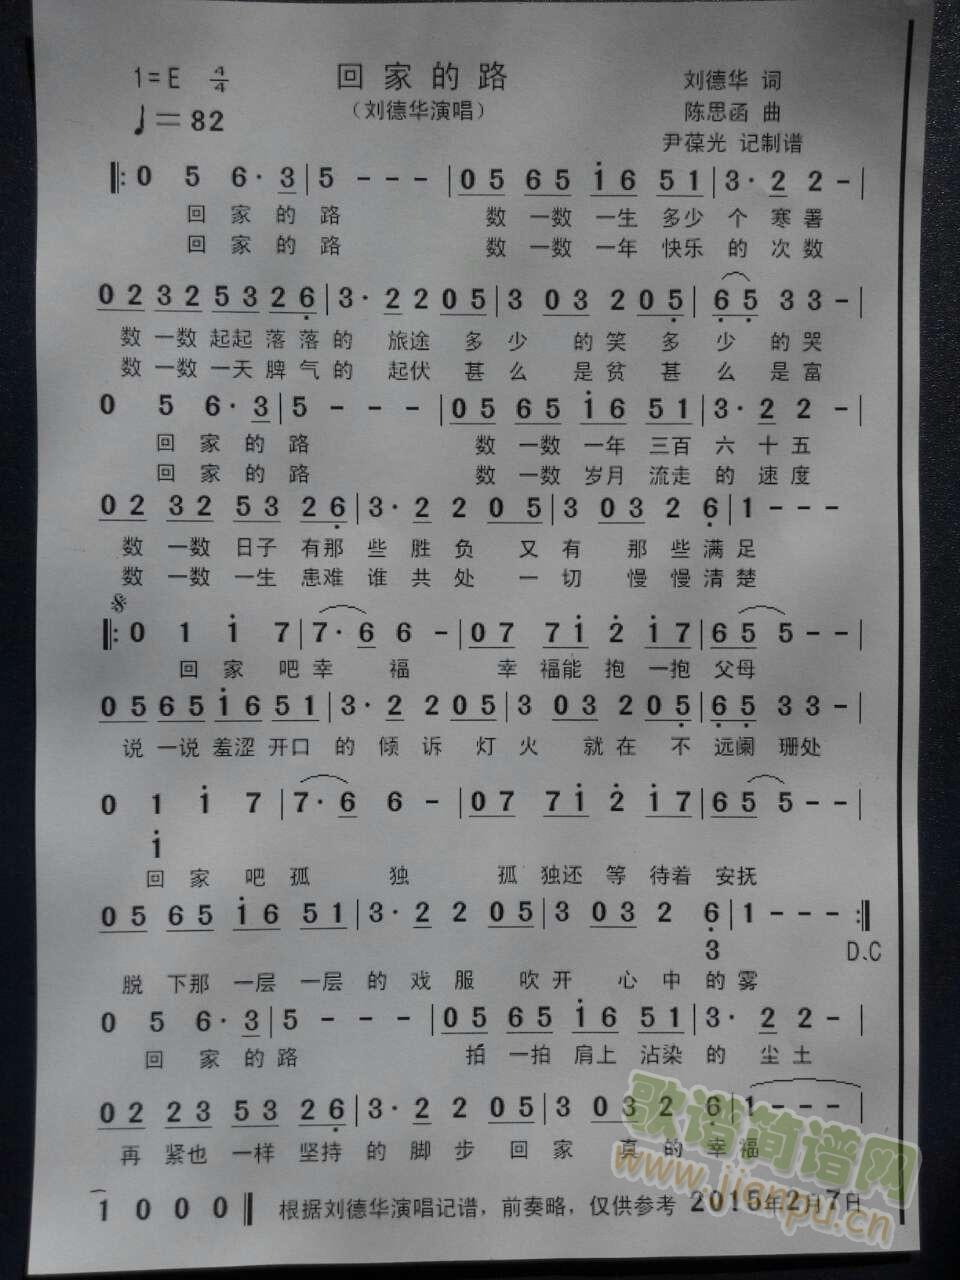 1=E 4/4 回家的路 刘德华 词
♩=82 (刘德华演唱) 陈思函 曲
尹葆光 记制谱
‖: 0 5 6· 3 | 5 - - - | 0 5 6 5 i 6 5 1 | 3· 2 2 - |
回家的路 数一数一生多少个寒署
回家的路 数一数一年快乐的次数
0 2 3 2 5 3 2 6 | 3· 2 2 0 5 | 3 0 3 2 0 5 | 6 5 3 3 - |
数一数起起落落的旅途多少的笑多少的哭
数一数一天脾气的起伏甚么是贫甚么是富
0 5 6· 3 | 5 - - - | 0 5 6 5 i 6 5 1 | 3· 2 2 - |
回家的路 数一数一年三百六十五
回家的路 数一数岁月流走的速度
0 2 3 2 5 3 2 6 | 3· 2 2 0 5 | 3 0 3 2 6 | 1 - - -
数一数日子有那些胜负又有那些满足
数一数一生患难谁共处一切慢慢清楚
‖: 0 1 i 7 | 7· 6 6 - | 0 7 7 i 2 i 7 | 6 5 5 - - |
回家吧幸福 幸福能抱一抱父母
0 5 6 5 i 6 5 1 | 3· 2 2 0 5 | 3 0 3 2 0 5 | 6 5 3 3 - |
说一说羞涩开口的倾诉灯火就在不远阑珊处
0 1 i 7 | 7· 6 6 - | 0 7 7 i 2 i 7 | 6 5 5 - - |
i
回家吧孤独 孤独还等待着安抚
0 5 6 5 i 6 5 1 | 3· 2 2 0 5 | 3 0 3 2 6 | 1 - - - :‖
3 D、C
脱下那一层一层的戏服吹开心中的雾
0 5 6· 3 | 5 - - - | 0 5 6 5 i 6 5 1 | 3· 2 2 - |
回家的路 拍一拍肩上沾染的尘土
0 2 2 3 5 3 2 6 | 3· 2 2 0 5 | 3 0 3 2 6 | 1 - - - |
再紧也一样坚持的脚步回家真的幸福
1 0 0 0 ‖ 根据刘德华演唱记谱，前奏略，仅供参考 2015年2月7日
歌谱简谱网
www.jianpu.cn